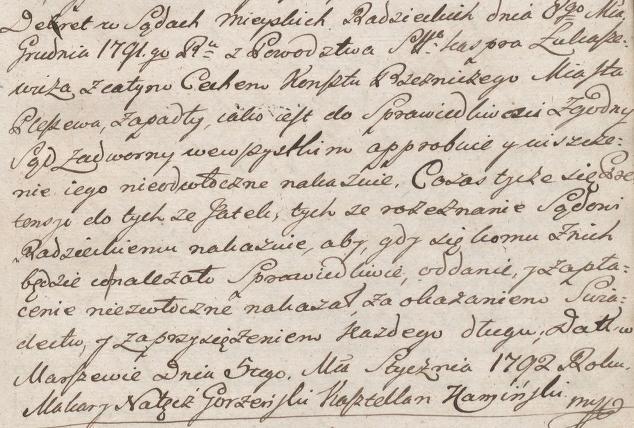 Dekret w Sądach Mieyskich Radzieckich dnia 8go Mia,
Grudnia 1791.go Ru z Powodztwa Kaspra Łukasze-
wiza, z catym Cechem Konsztu Rzezniczego Miasta
Pleszewa, zapadły, iako iest do Sprawiedliwosci zgodny
Sąd Zadworny wewszystkim approbuie y uiszcze-
nie iego nieodwłoczne nakazuie. Co zas tycze się Pre
tensji do tych ze Jatek, tych ze rozeznanie Sądowi
Radzieckiemu nakazuie, aby, gdy się komu znich
będzie nalezało Sprawiedliwie, oddanie, y zapła-
cenie niezwłoczne nakazał, za okazaniem Swia-
dectw, y zaprzysiężeniem kazdego długu, Datt w
Marszewie Dnia 5tego. Mca Stycznia 1792 Roku.
Makary Nałęcz Gorzeński Kasztellan Kamiński mpp